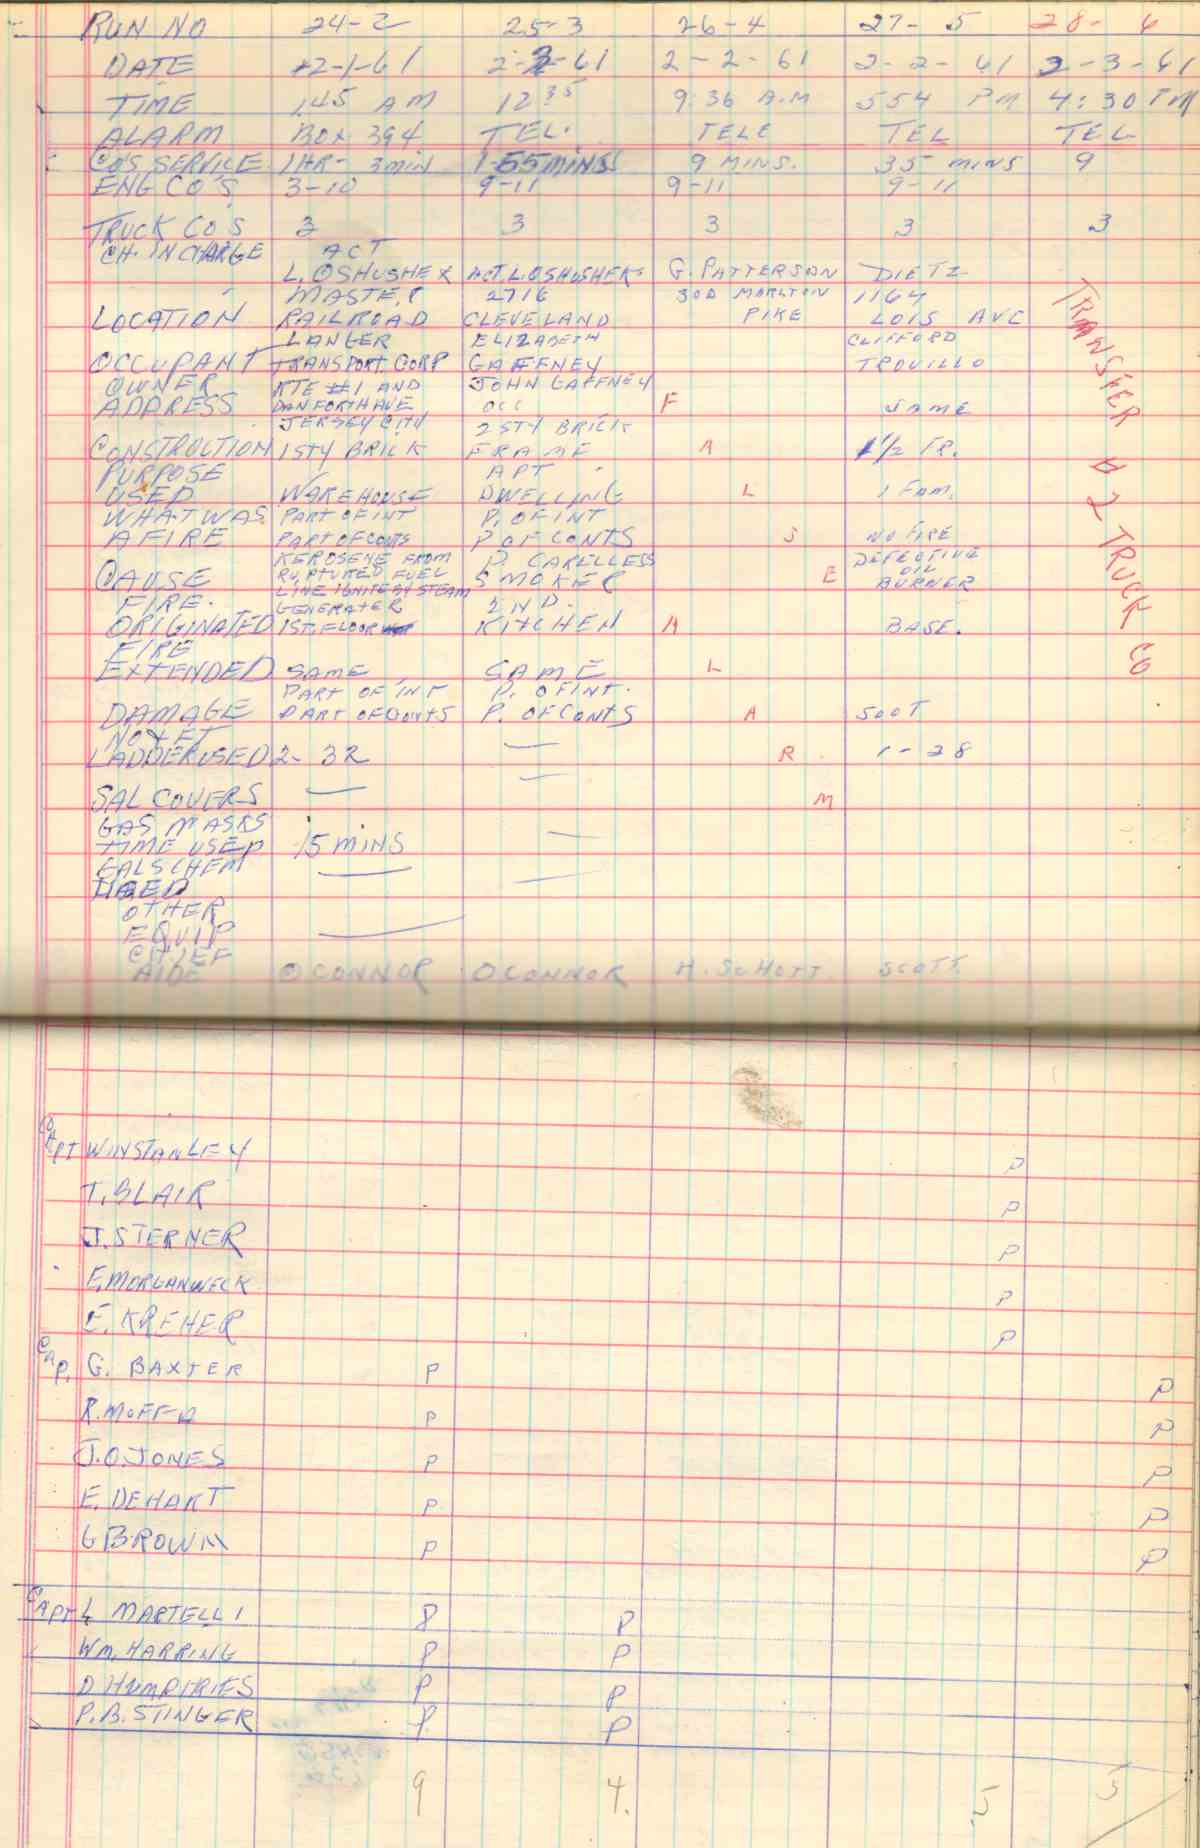 RUN NO 24-2 25-3 26-4 27-5 28-6
DATE 2-1-61 2-2-61 2-2-61 2-2-61 2-3-61
TIME 1.45 AM 12 35 9:36 A.M 554 PM 4:30 PM
ALARM BOX 394 TEL. TELE TEL TEL
CO'S SERVICE 1HR- 3MIN 1-55MINS 9 MINS. 35 MINS 9
ENG CO'S 3-10 9-11 9-11 9-11
TRUCK CO S 3 3 3 3 3
CH. IN CHARGE ACT
L. OSHUSHEK ACT. L. OSHUSHEK G. PATTERSON DIETZ
MASTER 2716 300 MARLTON 1164
LOCATION RAILROAD CLEVELAND PIKE LOIS AVE
LANGER ELIZABETH CLIFFORD
OCCUPANT TRANSPORT. CORP GAFFNEY TROVILLO
OWNER RTE #1 AND JOHN GAFFNEY
ADDRESS DANFORTH AVE OCC F SAME
JERSEY CITY 2STY BRICK
CONSTRUCTION 1STY BRICK FRAME A 1 1/2 FR.
PURPOSE APT
USED WAREHOUSE DWELLING L 1 FAM.
WHAT WAS PART OF INT P. OF INT
AFIRE PART OF CONTS P OF CONTS S NO FIRE
KEROSENE FROM P. CARELLESS DEFECTIVE
CAUSE RUPTURED FUEL SMOKER E OIL BURNER
LINE IGNITE BY STEAM
FIRE. GENERATER 2ND.
ORIGINATED 1ST. FLOOR KITCHEN A BASE.
FIRE
EXTENDED SAME SAME L
PART OF INT P. OF INT.
DAMAGE PART OF CONTS P. OF CONTS A SOOT
NO & FT
LADDER USED 2- 32 — R 1-28
SAL COVERS — — M
GAS MASKS
TIME USED 15 MINS —
GALS CHEM
USED — —
OTHER
EQUIP —
CHIEF
AIDE OCONNOR OCONNOR H. SCHOTT SCOTT
TRANSFER # 2 TRUCK CO
CAPT WINSTANLEY P
T. BLAIR P
J. STERNER P
E. MORGANWECK P
E. KREHER P
CAP. G. BAXTER P P
R. MOFFA P P
J.O. JONES P P
E. DEHART P P
G BROWN P P
CAPT L MARTELLI P P
WM. HARRING P P
D HUMPHRIES P P
P.B. STINGER P P
9 4. 5 5